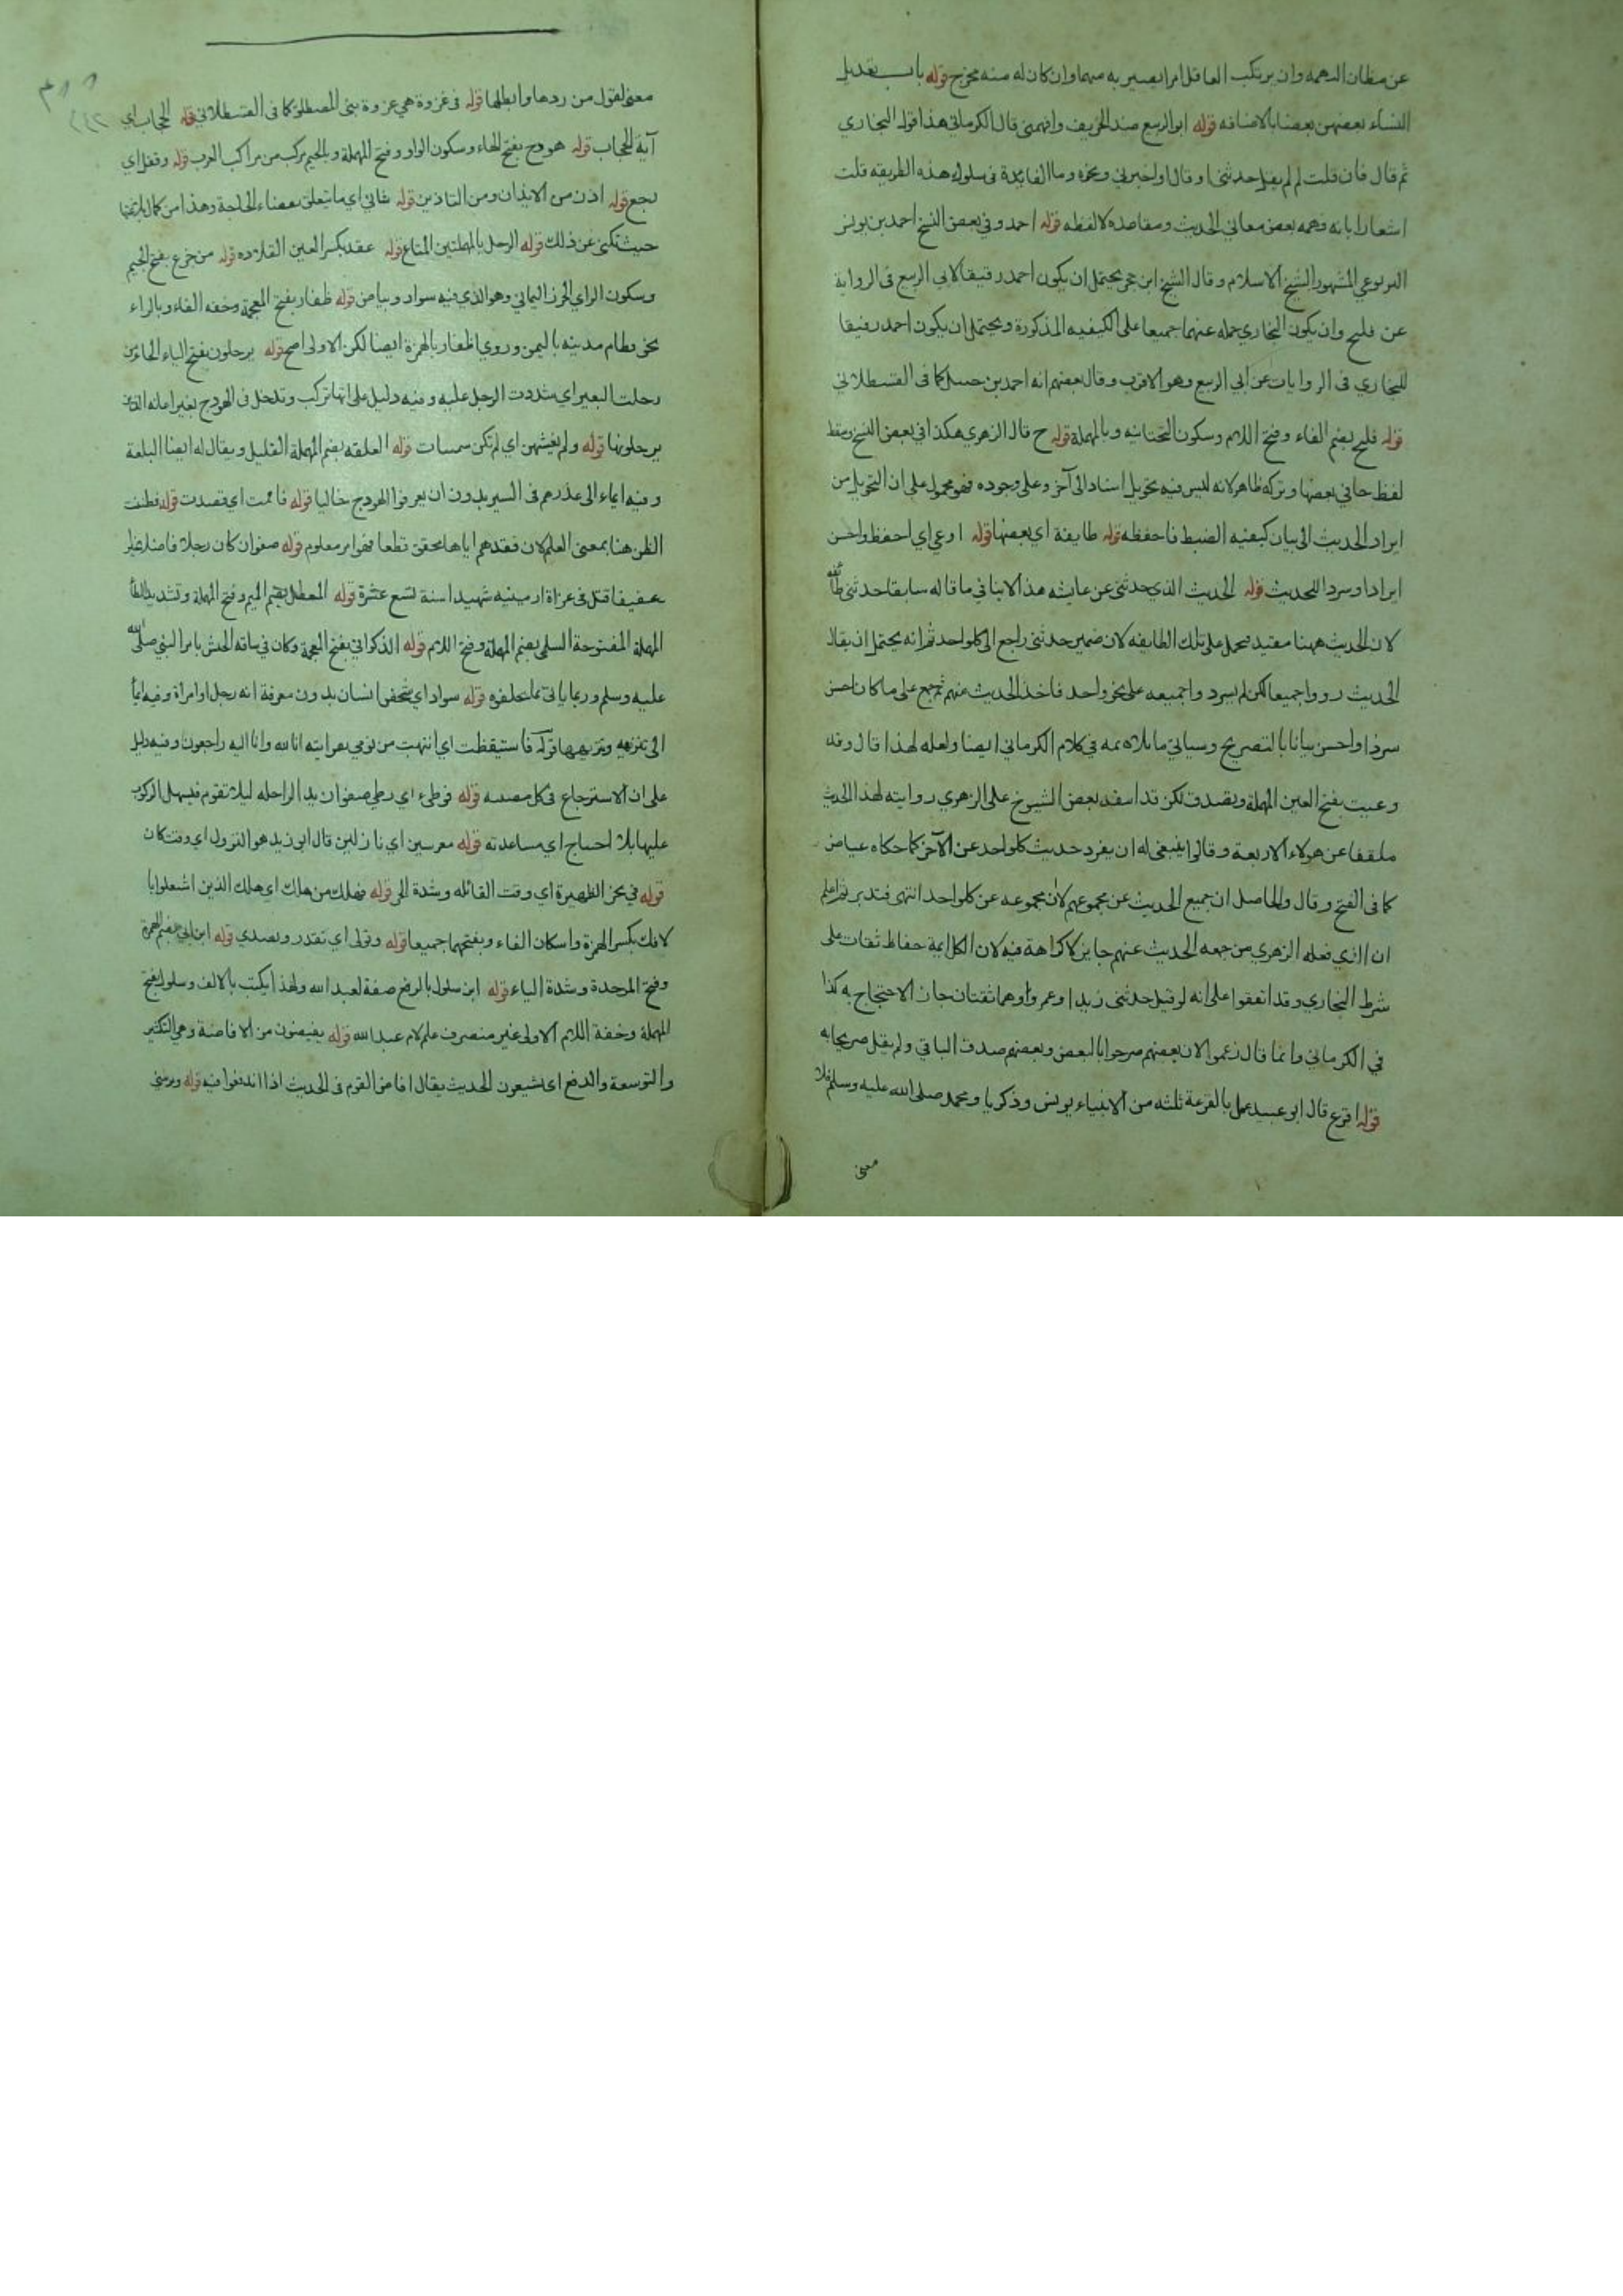 عن مظان التهمة وان يرتكب العاقل امرا يصير به متهما وان كان له منه مخرج قوله باب تعديل
النساء بعضهن بعضا بالاضافة قوله ابو الربيع ضد الخريف وافهمني قال الكرماني هذا قول البخاري
ثم قال فان قلت لم لم يقل حدثني او قال او اخبرني ونحوه وما الفايدة في سلوك هذه الطريقه قلت
اشعارا بانه فهمه بعض معاني الحديث ومقاصده لا لفظه قوله احمد وفي بعض النسخ احمد بن يونس
اليربوعي المشهور الشيخ الاسلام وقال الشيخ ابن حجر يحتمل ان يكون احمد رفيقا لابي الربيع في الرواية
عن فليح وان يكون البخاري حمله عنهما جميعا على الكيفيه المذكورة ويحتمل ان يكون احمد رفيقا
للبخاري في الروايات عن ابي الربيع وهو الاقرب وقال بعضهم انه احمد بن حنبل كما في القسطلاني
قوله فليح بضم الفاء وفتح اللام وسكون التحتانيه وبالمهملة قوله ح قال الزهري هكذا في بعض النسخ وسقط
لفظ حا في بعضها وتركه ظاهر لانه ليس فيه تحويل اسناد الى آخر وعلى وجوده فهو محمول على ان التحويل من
ايراد الحديث الى بيان كيفيه الضبط فاحفظه قوله طايفة اي بعضها قوله اوعى اي احفظ واحسن
ايرادا وسردا للحديث قوله الحديث الذي حدثني عن عايشه هذا لا ينافي ما قاله سابقا حدثني طائفة
لان الحديث ههنا مقيد محمل على تلك الطايفه لان ضمير حدثني راجع الى كل واحد ثم انه يحتمل ان يقال
الحديث رووا جميعا لكن لم يسرد واجميعه على نحو واحد فاخذ الحديث منهم ثم جمع على ما كان احسن
سردا واحسن بيانا بالتصريح وسياتي ما يلائمه في كلام الكرماني ايضا ولعله لهذا قال وقد
وعيت بفتح العين المهملة وبصدق لكن قد انتقد بعض الشيوخ على الزهري روايته لهذا الحديث
ملفقا عن هولاء الاربعة وقالوا ينبغي له ان يفرد حديث كل واحد عن الآخر كما حكاه عياض
كما في الفتح وقال والحاصل ان جميع الحديث عن مجموعهم لان مجموعه عن كل واحد انتهى فتدبر ثم اعلم
ان الذي فعله الزهري من جمعه الحديث عنهم جايز لا كراهة فيه لان الكل ايمة حفاظ ثقات على
شرط البخاري وقد اتفقوا على انه لو قيل حدثني زيد او عمرو وهما ثقتان جاز الاحتجاج به كذا
في الكرماني وانما قال زعموا لان بعضهم صرحوا بالبعض وبعضهم صدق الباقي ولم يقل صريحا به
قوله اقرع قال ابو عبيد عمل بالقرعة ثلثه من الانبياء يونس وذكريا ومحمد صلى الله عليه وسلم فلا
معنى
معنى لقول من ردها وابطلها قوله في غزوة هي غزوة بني المصطلق كما في القسطلاني قوله الحجاب اي
آية الحجاب قوله هودج بفتح الهاء وسكون الواو وفتح المهملة وبالجيم مركب من مراكب العرب قوله وقفل اي
رجع قوله اذن من الايذان ومن التاذين قوله شاني اي ما يتعلق بقضاء الحاجة وهذا من كمال بلاغتها
حيث تكنى عن ذلك قوله الرحل بالمهملتين المتاع قوله عقد بكسر العين القلاده قوله من جزع بفتح الجيم
وسكون الزاي الخرز اليماني وهو الذي فيه سواد وبياض قوله ظفار بفتح المعجمة وخفه الفاء وبالراء
نحو بطام مدينه باليمن وروي اظفار بالهمزة ايضا لكن الاولى اصح قوله يرحلون بفتح الياء الحاء من
رحلت البعير اي شددت الرحل عليه وفيه دليل على انها تركب وتدخل في الهودج بغير اعانه الذين
يرحلونها قوله ولم يغشهن اي لم تكن سمينات قوله العلقه بضم المهملة القليل ويقال له ايضا البلغة
وفيه ايماء الى عذرهم في السير بدون ان يعرفوا الهودج خاليا قوله فاممت اي قصدت قوله فظننت
الظن هنا بمعنى العلم لان فقدهم اياها تحقق قطعا فهو امر معلوم قوله صفوان كان رجلا فاضلا خيرا
عفيفا قتل في غزاة ارمينيه شهيدا سنة تسع عشرة قوله المعطل بضم الميم وفتح المهملة وتشديد الطاء
المهملة المفتوحة السلمي بضم المهملة وفتح اللام قوله الذكواني بفتح المعجمة وكان في ساقه الجيش بامر النبي صلى الله
عليه وسلم وربما ياتى بما تخلفوه قوله سواد اي شخص انسان بدون معرفة انه رجل او امراة وفيه ايماء
الى تنزيهه وتنزيهها قوله فاستيقظت اي انتبهت من نومي بقراءته انا لله وانا اليه راجعون وفيه دليل
على ان الاسترجاع في كل مصيبة قوله فوطىء اي وطي صفوان يد الراحله ليلا تقوم فيسهل الركوب
عليها بلا احتياج اي مساعدته قوله معرسين اي نازلين قال ابو زيد هو النزول اي وقت كان
قوله في نحر الظهيرة اي وقت القائله وشدة الحر قوله فهلك من هلك اي هلك الذين اشتغلوا با
لافك بكسر الهمزة واسكان الفاء وبفتحهما جميعا قوله وتولى اي تقدر وتصدى قوله ابن ابي بضم الهمزة
وفتح الموحدة وشدة الياء قوله ابن سلول بالرفع صفة لعبد الله ولهذا يكتب بالالف وسلول بفتح
المهملة وخفة اللام الاولى غير منصرف علم لام عبد الله قوله يفيضون من الافاضة وهي التكثير
والتوسعة والدفع اي يشيعون الحديث يقال افاض القوم في الحديث اذا اندفعوا فيه قوله ويريبني